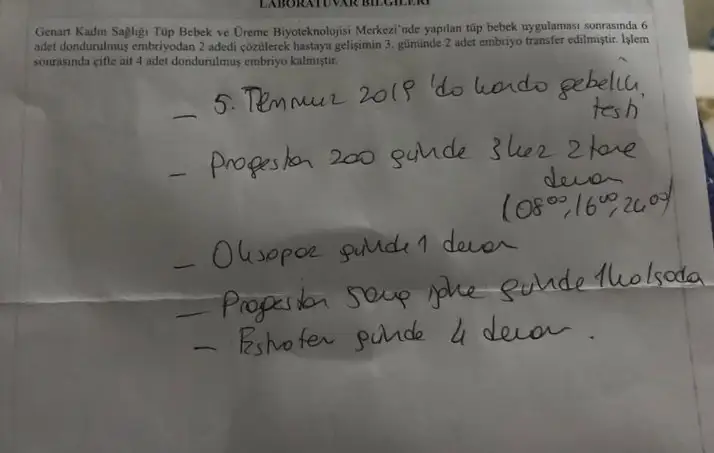 LABORATUVAR BİLGİLERİ
Genart Kadın Sağlığı Tüp Bebek ve Üreme Biyoteknolojisi Merkezi'nde yapılan tüp bebek uygulaması sonrasında 6
adet dondurulmuş embriyodan 2 adedi çözülerek hastaya gelişimin 3. gününde 2 adet embriyo transfer edilmiştir. İşlem
sonrasında çifte ait 4 adet dondurulmuş embriyo kalmıştır.
- 5. Temmuz 2019 'da kanda gebelik
testi
- Progestan 200 günde 3 kez 2 tane
devam
(08⁰⁰, 16⁰⁰, 24⁰⁰)
- günde 1 devam
- Progestan 50mg iğne günde 1 kalçada
- Estrofem günde 4 devam.